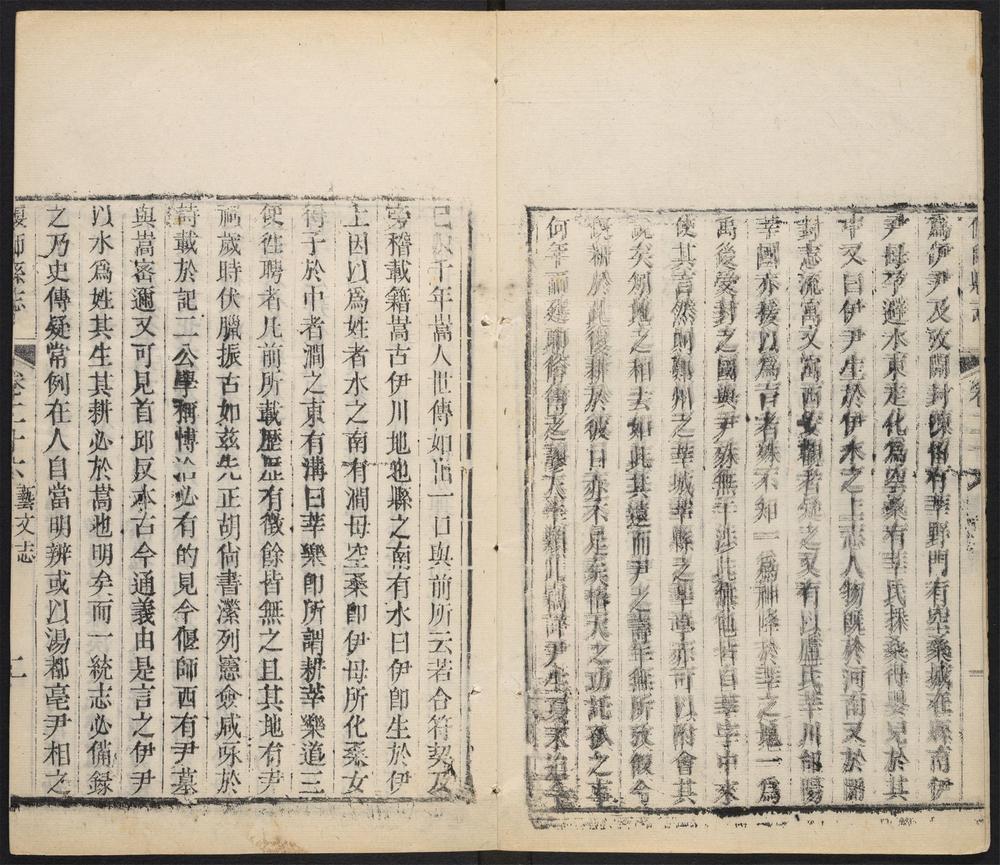 偃師縣志
爲伊尹及攷開封陳留有莘野門有空桑城在縣南伊
尹母孕避水東走化爲空桑有莘氏採桑得嬰兒於其
中又曰伊尹生於伊水之上志人物旣於河南又於開
封志流寓又寓西安
莘國亦援以爲言者殊不知一爲神降於莘之地一爲
禹後受封之國與尹殊無干涉此無他皆自莘字中來
使其言然則鄭州之莘城莘縣之莘亭亦可以附會其
說矣矧地之相去如此其遠而尹之壽年無所攷假令
復耕於此復耕於彼日亦不足矣格天之功託孤之事
何年而建耶俗傳之謬大率類此尹生夏末迨今
已三千年嵩人世傳如出一口與前所云若合符契及
旁稽載籍嵩古伊川地也縣之南有水曰伊卽生於伊
上因以爲姓者水之南有澗母空桑卽伊母所化桑女
得子於中者澗之東有溝曰莘樂卽所謂耕莘樂道三
使徃聘者凡前所載歷歷有徵餘皆無之且其地有尹
祠歲時伏臘振古如玆先正胡尙書濙列憲僉咸咏於
詩載於記二公學稱博洽必有的見今偃師西有尹墓
與嵩密邇又可見首邱反本古今通義由是言之伊尹
以水爲姓其生其耕必於嵩也明矣而一統志必備録
之乃史傳疑常例在人自當明辨或以湯都亳尹相之
偃師縣志 卷二十六 藝文志 二